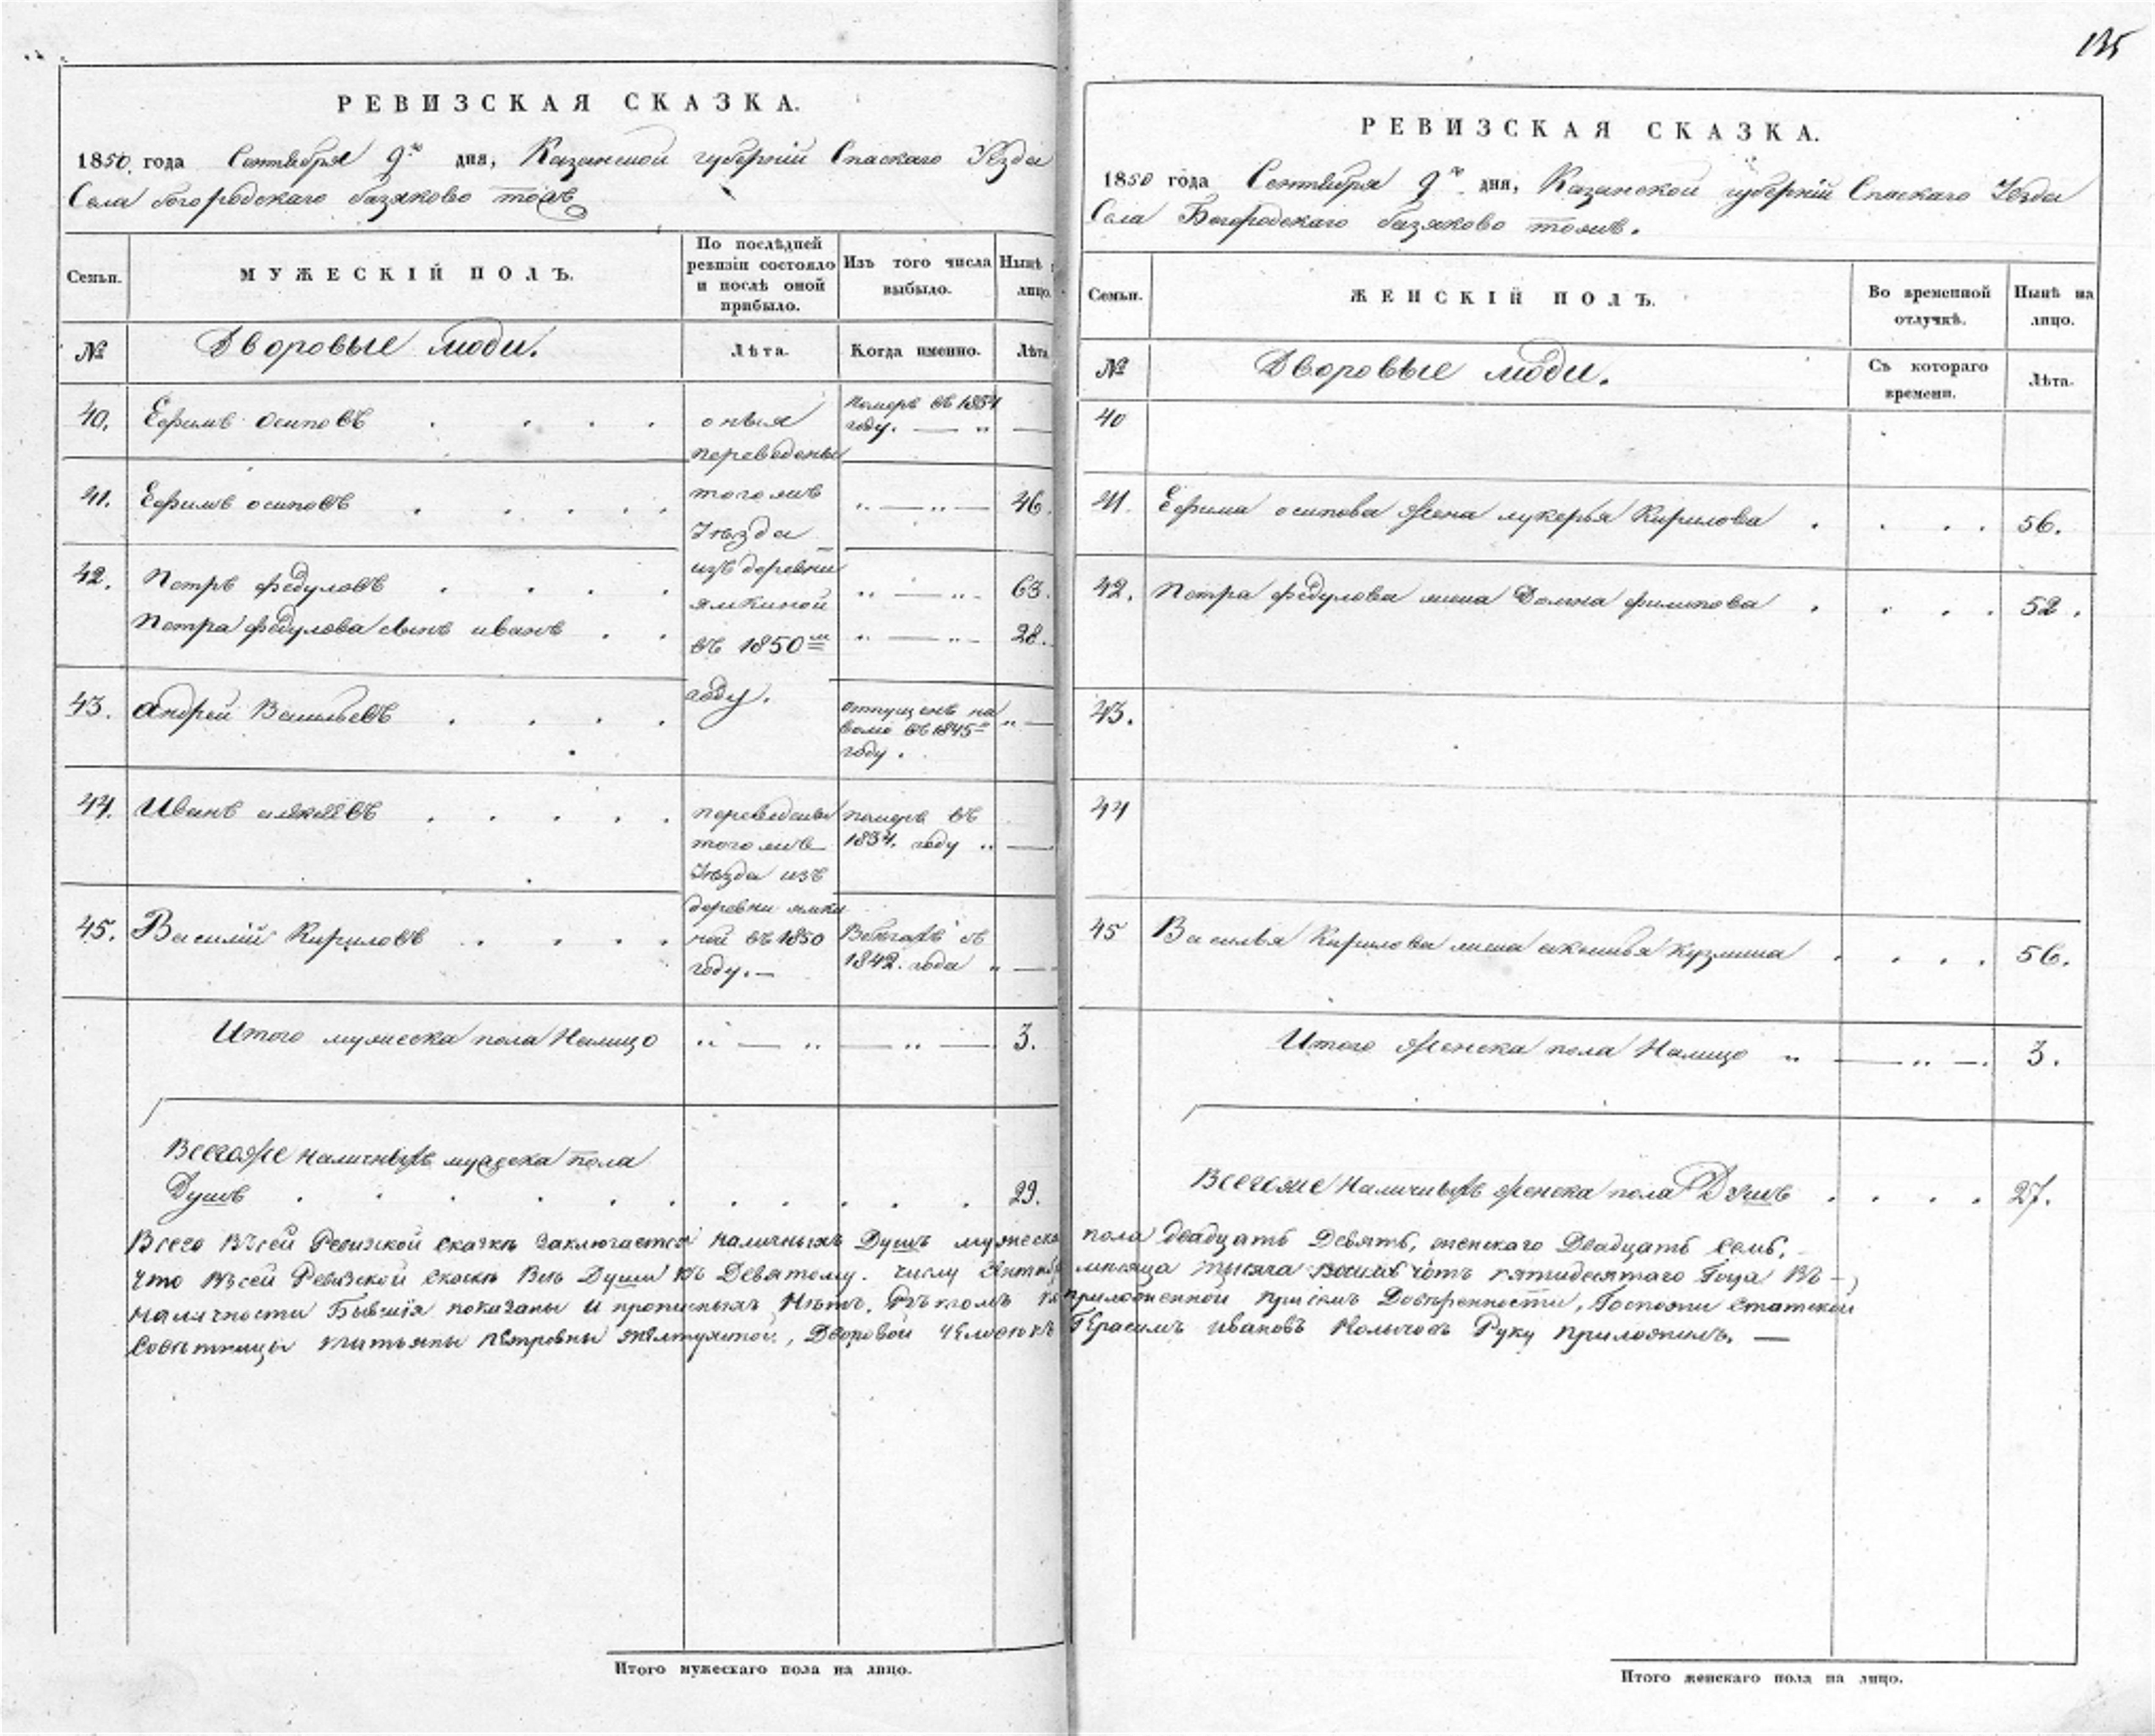 135
РЕВИЗСКАЯ СКАЗКА.
1850 года Сентября 9го дня, Казанской губернiи Спаскаго Уѣзда
Села богородскаго базяково тожъ
Семьи.
МУЖЕСКIЙ ПОЛЪ.
По послѣдней
ревизiи состояло
и послѣ оной
прибыло.
Изъ того числа
выбыло.
Нынѣ
лицо.
№
Дворовые люди.
Лѣта.
Когда именно.
Лѣта
40. Ефимъ Осиповъ
оныя
переведены
тогожъ
Уѣзда
изъ деревни
ямкиной
въ 1850м
году.
Померъ въ 1834
году.
41. Ефимъ осиповъ 46.
42. Петръ федуловъ 63.
Петра федулова сынъ иванъ 28.
43. андрей Васильевъ
отпущенъ на
волю въ 1845м
году.
44. Иванъ
переведены
тогоже
Уѣзда изъ
деревни ямки
ной въ 1850
году.
померъ въ
1834. году
45. Василiй Кириловъ
Въбегахъ съ
1842. года
Итого мужеска пола Налицо 3.
Всегоже наличныхъ мужеска пола
Душъ 29.
РЕВИЗСКАЯ СКАЗКА.
1850 года Сентября 9го дня, Казанской губернiи Спаскаго Уѣзда
Села Богородскаго базяково тожъ.
Семьи.
ЖЕНСКIЙ ПОЛЪ.
Во временной
отлучкѣ.
Нынѣ на
лицо.
№
Дворовые люди.
Съ котораго
времени.
Лѣта.
40
41. Ефима осипова жена лукерья Кирилова 56.
42. Петра федулова жена Домна филипова 52.
43.
44
45 Василья Кирилова жена Кузмина 56.
Итого женска пола Налицо 3.
Всегоже Наличныхъ женска пола Душъ 27.
Всего Въсей Ревизкой сказкѣ заключается наличныхъ Душъ мужеска пола двадцать Девять, женскаго Двадцать семь,
что Въсей Ревизской скаскѣ Всѣ Души къ Девятому. числу мѣсяца тысяча пятидесятаго Года Въ
наличности Бывшiя показаны и прописныхъ Нѣтъ, Въ томъ приложенной присемъ Доверенности, Госпожи статской
советницы татьяны петровны , Дворовой человекъ Герасимъ ивановъ Руку приложилъ.
Итого мужескаго пола на лицо.
Итого женскаго пола на лицо.